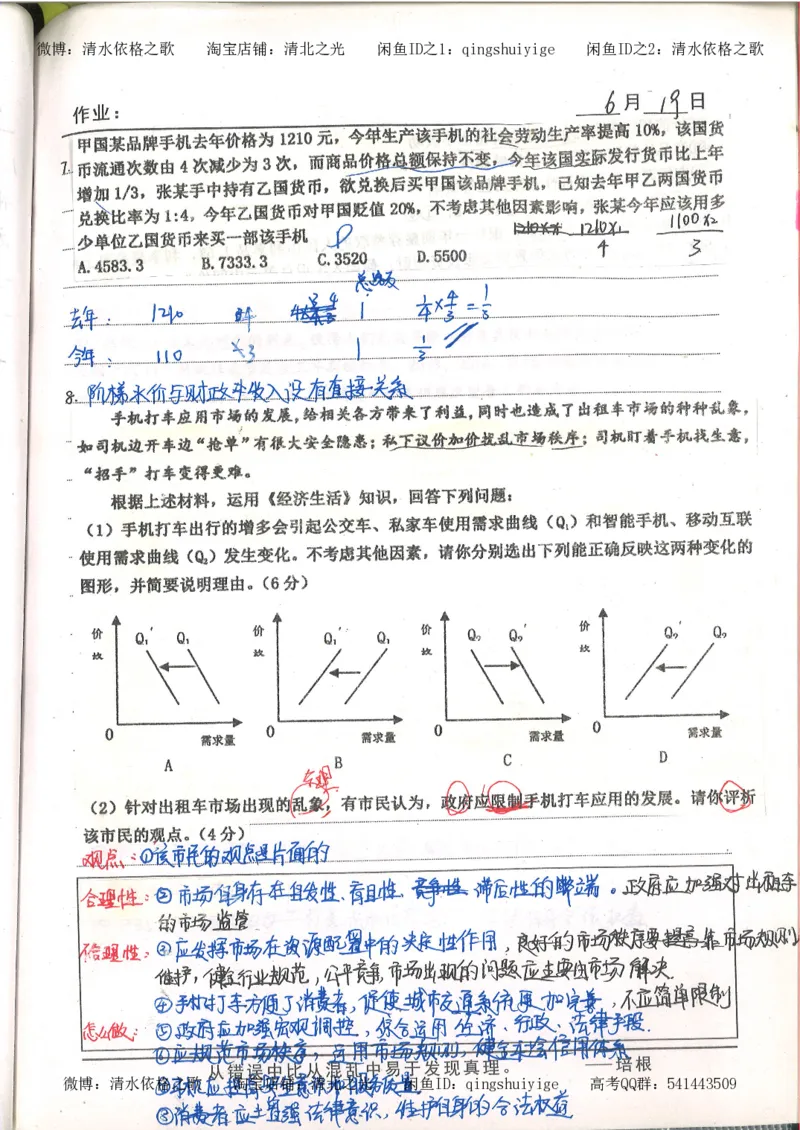 微博：清水依格之歌 淘宝店铺：清北之光 闲鱼ID之1：qingshuiyige 闲鱼ID之2：清水依格之歌
作业： 6月19日
甲国某品牌手机去年价格为1210元，今年生产该手机的社会劳动生产率提高10%，该国货
7. 币流通次数由4次减少为3次，而商品价格总额保持不变，今年该国实际发行货币比上年
增加1/3，张某手中持有乙国货币，欲兑换后买甲国该品牌手机，已知去年甲乙两国货币
兑换比率为1:4，今年乙国货币对甲国贬值20%，不考虑其他因素影响，张某今年应该用多
少单位乙国货币来买一部该手机 D 1210×1/4 1100×2/3
A.4583.3 B.7333.3 C.3520 D.5500
去年： 1210 1 1/4×4/3=1/3
今年： 110 3 1 1/3
8. 阶梯水价与财政收入没有直接关系
手机打车应用市场的发展，给相关各方带来了利益，同时也造成了出租车市场的种种乱象，
如司机边开车边“抢单”有很大安全隐患；私下议价加价扰乱市场秩序；司机盯着手机找生意，
“招手”打车变得更难。
根据上述材料，运用《经济生活》知识，回答下列问题：
（1）手机打车出行的增多会引起公交车、私家车使用需求曲线（Q₁）和智能手机、移动互联
使用需求曲线（Q₂）发生变化。不考虑其他因素，请你分别选出下列能正确反映这两种变化的
图形，并简要说明理由。（6分）
价格 Q₁′ Q₁ 价格 Q₁′ Q₁ 价格 Q₂ Q₂′ 价格 Q₂′ Q₂
0 需求量 0 需求量 0 需求量 0 需求量
A B C D
合理
（2）针对出租车市场出现的乱象，有市民认为，政府应限制手机打车应用的发展。请你评析
该市民的观点。（4分）
观点：①该市民的观点是片面的
合理性：②市场自身存在自发性、盲目性、滞后性的弊端。政府应加强对出租车
的市场监管
不合理性：③应发挥市场在资源配置中的决定性作用，良好的市场秩序要靠市场规则
维护，健全行业规范，公平竞争，市场出现的问题应主要由市场解决.
④手机打车方便了消费者，促使城市交通系统更加完善，不应简单限制
怎么做：⑤政府应加强宏观调控，综合运用经济、行政、法律手段.
⑥应规范市场秩序，运用市场规则，健全社会信用体系
从错误中比从混乱中易于发现真理。 ——培根
微博：清水依格之歌 淘宝店铺：清北之光 闲鱼ID：qingshuiyige 高考QQ群：541443509
⑧消费者应土增强法律意识，维护自身的合法权益